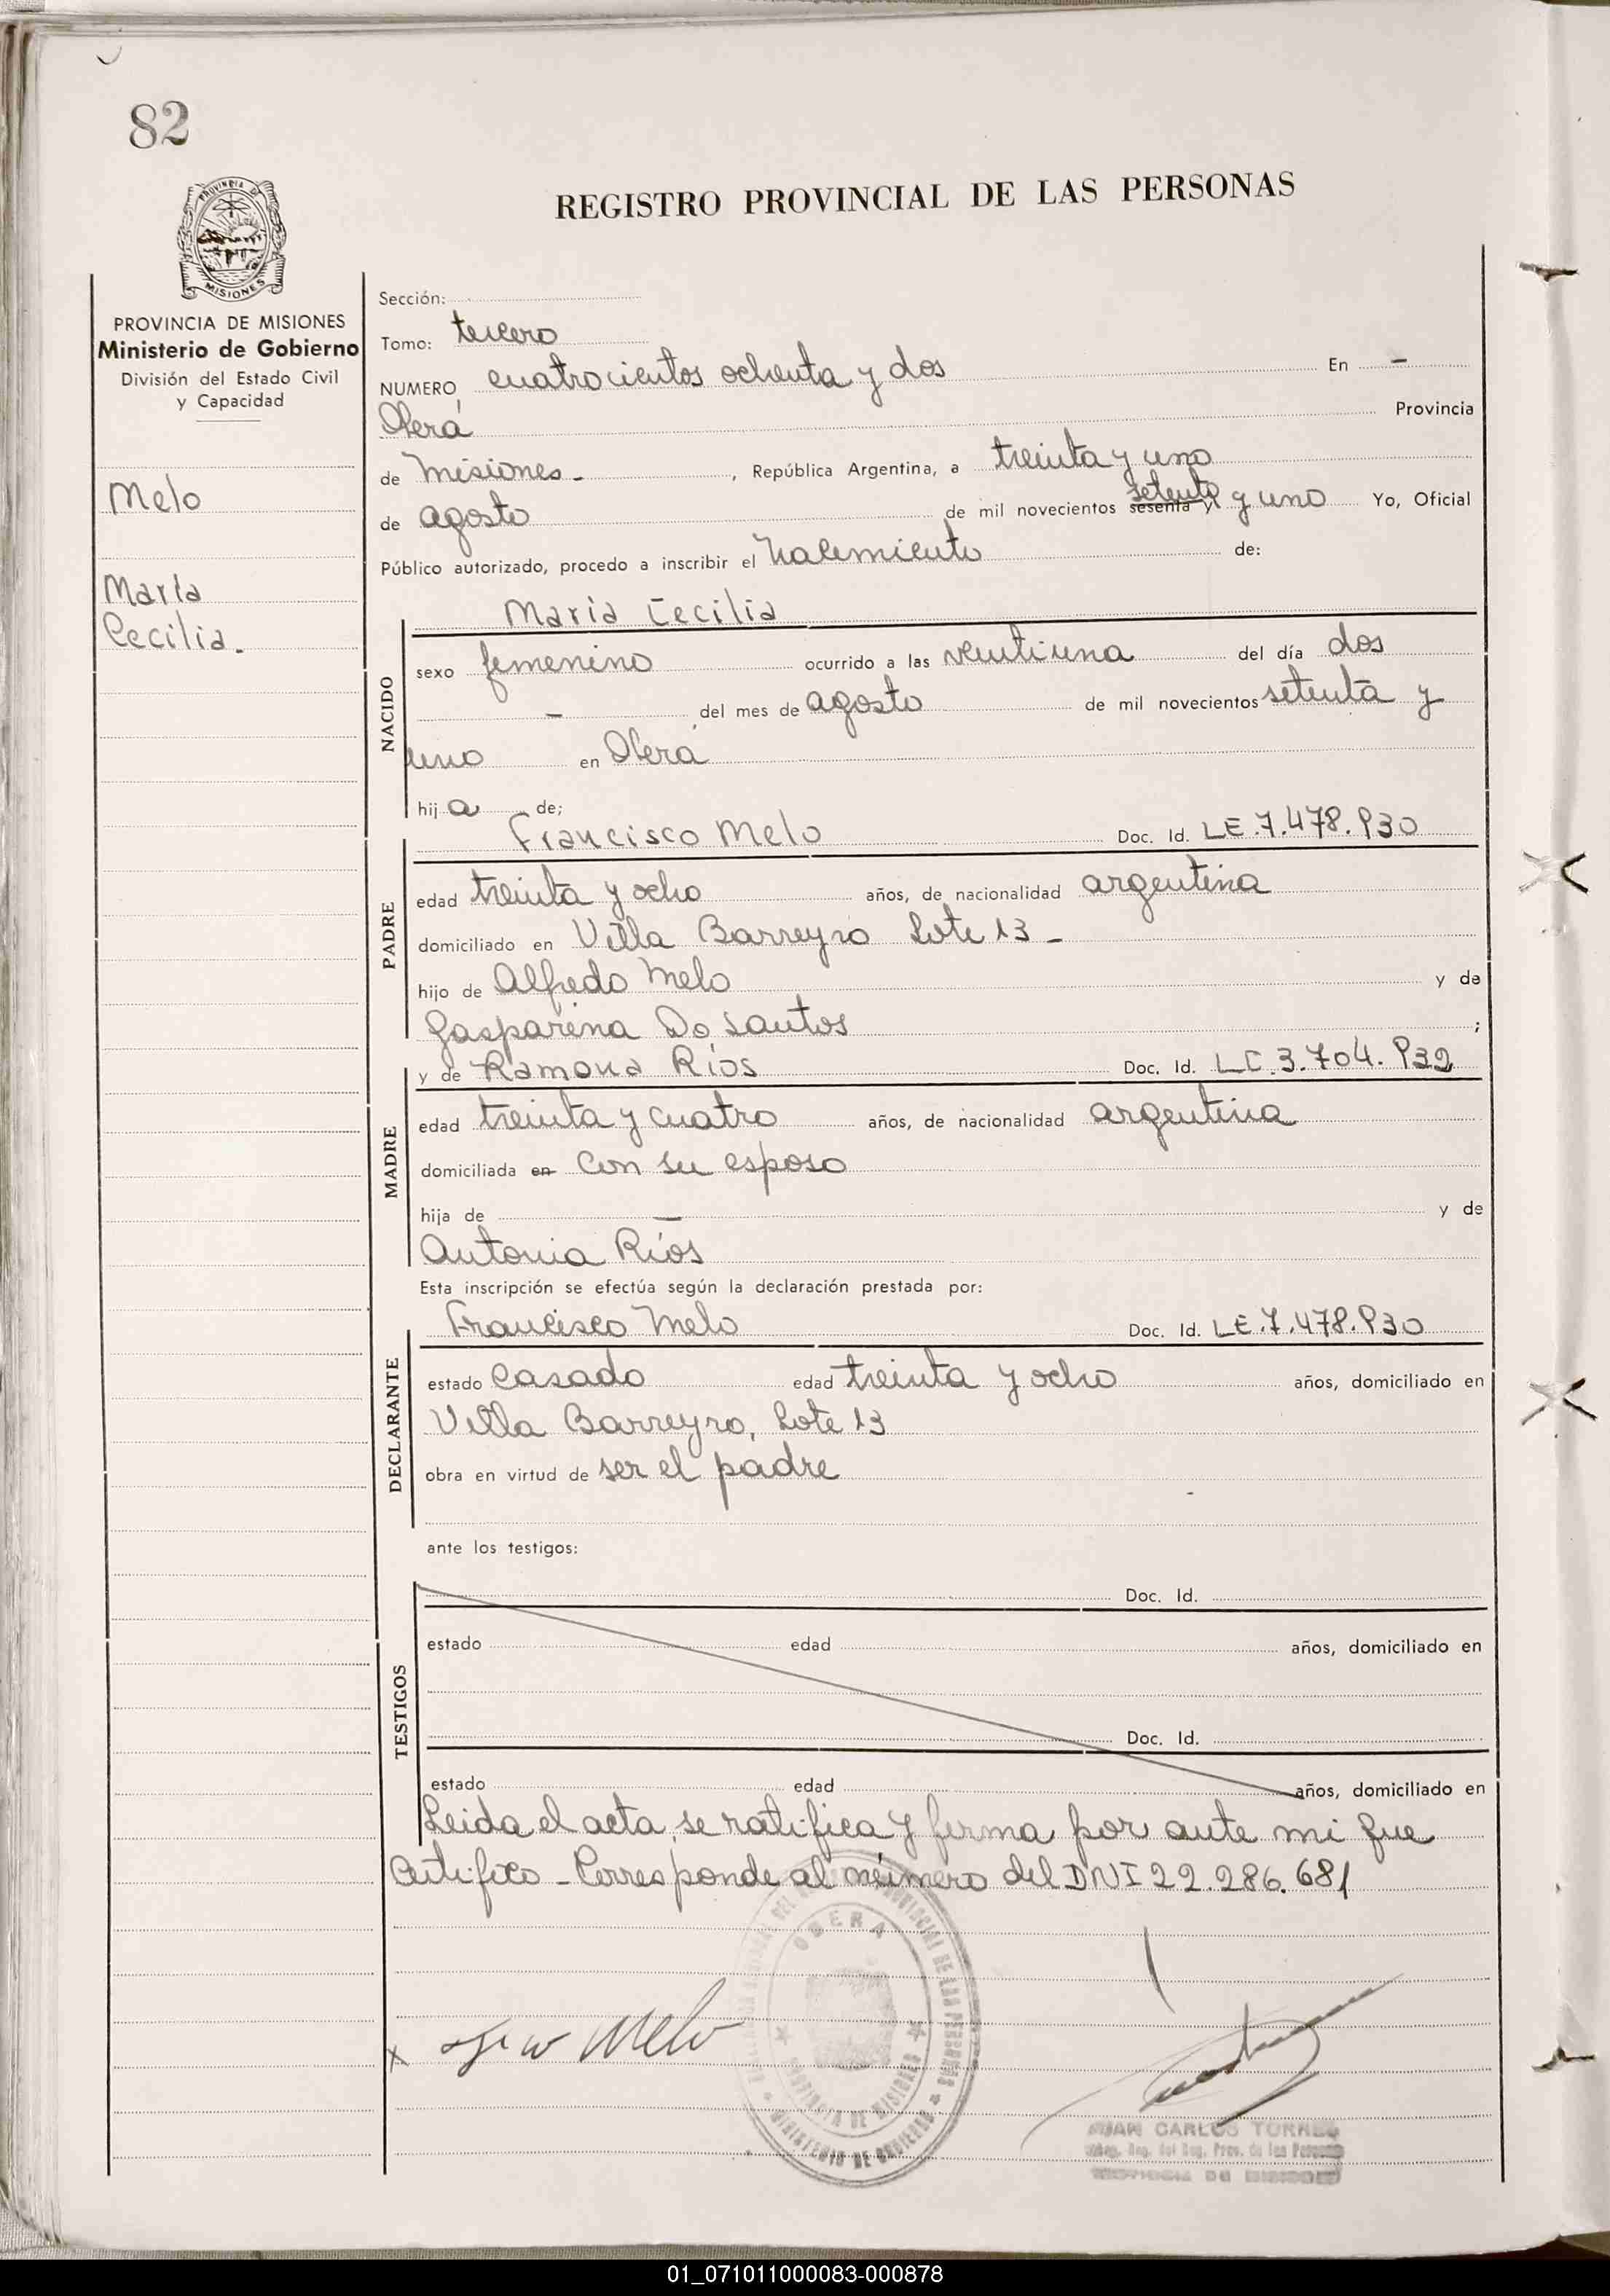 82
PROVINCIA DE
MISIONES
REGISTRO PROVINCIAL DE LAS PERSONAS
PROVINCIA DE MISIONES
Ministerio de Gobierno
División del Estado Civil
y Capacidad
Melo
María
Cecilia.
Sección:
Tomo: tercero
NUMERO cuatrocientos ochenta y dos En -
Oberá Provincia
de Misiones - , República Argentina, a treinta y uno
de agosto de mil novecientos sesenta y setenta y uno Yo, Oficial
Público autorizado, procedo a inscribir el nacimiento de:
NACIDO
María Cecilia
sexo femenino ocurrido a las veintiuna del día dos
- del mes de agosto de mil novecientos setenta y
uno en Oberá
hij a de;
PADRE
Francisco Melo Doc. Id. LE.7.478.930
edad treinta y ocho años, de nacionalidad argentina
domiciliado en Villa Barreyro Lote 13 -
hijo de Alfredo Melo y de
Gasparina Do Santos ;
MADRE
y de Ramona Ríos Doc. Id. LC.3.704.932
edad treinta y cuatro años, de nacionalidad argentina
domiciliada en con su esposo
hija de — y de
Antonia Ríos
Esta inscripción se efectúa según la declaración prestada por:
DECLARANTE
Francisco Melo Doc. Id. LE.7.478.930
estado casado edad treinta y ocho años, domiciliado en
Villa Barreyro, Lote 13
obra en virtud de ser el padre
ante los testigos:
TESTIGOS
Doc. Id.
estado edad años, domiciliado en
Doc. Id.
estado edad años, domiciliado en
Leida el acta, se ratifica y firma por ante mi que
certifico - Corresponde al número del DNI 22.286.681
OBERA
PROVINCIA DE MISIONES
MINISTERIO DE GOBIERNO
x Melo
JUAN CARLOS TORRES
Reg. Prov. de las Personas
PROVINCIA DE MISIONES
01_071011000083-000878